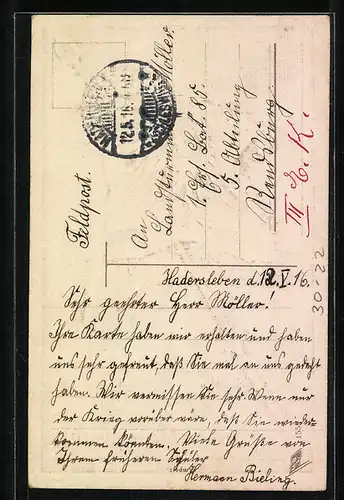 Feldpost.
12.5.16.
An
Landsturmmann Möller.
1. Ers. Bat. 85.
5. Abteilung
Rendsburg
III E. K.
30-22
Hadersleben d. 12.V.16.
Sehr geehrter Herr Möller!
Ihre Karte haben wir erhalten und haben
uns sehr gefreut, daß Sie mal an uns gedacht
haben. Wir vermissen Sie sehr. Wenn nur
der Krieg vorüber wäre, daß Sie wieder-
kommen könnten. Viele Grüße von
Ihrem früheren Schüler
Hermann Bieling.